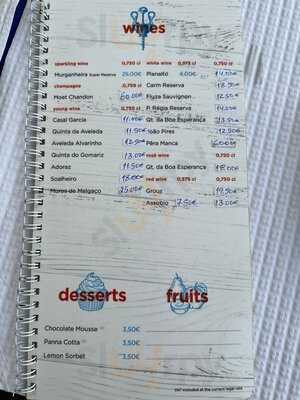 wines
sparkling wine 0,750 cl
Murganheira Super Reserva 25.00€
champagne 0,750 cl
Moet Chandon 60.00€
young wine 0,750 cl
Casal Garcia 11.00€
Quinta da Aveleda 11.50€
Aveleda Alvarinho 12.50€
Quinta do Gomariz 13.00€
Adoraz 11.50€
Soalheiro
Muros de Melgaço 25.00€
white wine 0,375 cl 0,750 cl
Planalto 14.00€
Carm Reserva 18.50€
Flyza Sauvignon 12.50€
P. Régia Reserva 14.00€
Qt. da Boa Esperança 13.50€
João Pires 12.50€
Pêra Manca 60.00€
red wine 0,750 cl
Qt. da Boa Esperança 18.00€
red wine 0,375 cl 0,750 cl
Grous 19.50€
Assobio 7.50€ 13.00€
desserts
Chocolate Mousse 3,50€
Panna Cotta 3,50€
Lemon Sorbet 3,50€
fruits
VAT included at the current legal rate